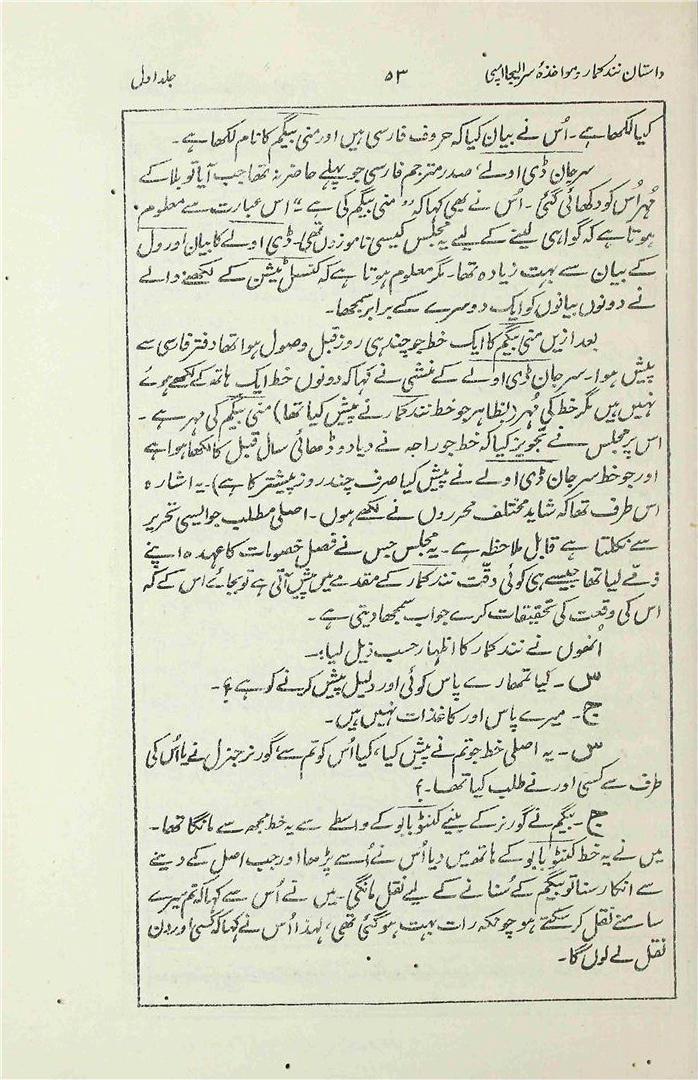 داستان نند کمار ؛ مواخذۂ سر الیجا امپی ۵۳ جلد اول
کیا لکھا ہے ۔ اُس نے بیان کیا کہ حروف فارسی ہیں اور منی بیگم کا نام لکھا ہے ۔
سر جان ڈی اولے ، صدر مترجم فارسی جو پہلے حاضر نہ تھا جب آیا تو بلا کے
مُہر اُس کو دکھائی گئی ۔ اُس نے بھی کہا کہ " منی بیگم کی ہے ۔" اس عبارت سے معلوم
ہوتا ہے کہ گواہی لینے کے لیے یہ مجلس کیسی ناموزوں تھی ۔ ڈی اولے کا بیان اورول
کے بیان سے بہت زیادہ تھا ۔ مگر معلوم ہوتا ہے کہ کنسل ٹیشن کے لکھنے والے
نے دونوں بیانوں کو ایک دوسرے کے برابر سمجھا ۔
بعد ازیں منی بیگم کا ایک خط جو چند ہی روز قبل وصول ہوا تھا دفتر فارسی سے
پیش ہوا ۔ سر جان ڈی اولے کے منشی نے کہا کہ دونوں خط ایک ہاتھ کے لکھے ہوئے
نہیں ہیں مگر خط کی مُہر (بظاہر جو خط نند کمار نے پیش کیا تھا) منی بیگم کی مہر ہے ۔
اس پر مجلس نے تجویز کیا کہ خط جو راجہ نے دیا دو ڈھائی سال قبل کا لکھا ہوا ہے
اور جو خط سر جان ڈی اولے نے پیش کیا صرف چند روز پیشتر کا ہے) ۔ یہ اشارہ
اس طرف تھا کہ شاید مختلف محرروں نے لکھے ہوں ۔ اصلی مطلب جو ایسی تحریر
سے نکلتا ہے قابل ملاحظہ ہے ۔ یہ مجلس جس نے فصل خصومات کا عہدہ اپنے
ذمّے لیا تھا جیسے ہی کوئی دقّت نند کمار کے مقدمے میں پیش آتی ہے تو بجائے اس کے کہ
اس کی وقعت کی تحقیقات کرے جواب سمجھا دیتی ہے ۔
اُنھوں نے نند کمار کا اظہار حسب ذیل لیا :۔
س ۔ کیا تمھارے پاس کوئی اور دلیل پیش کرنے کو ہے ؟ ۔
ج ۔ میرے پاس اور کاغذات نہیں ہیں ۔
س ۔ یہ اصلی خط جو تم نے پیش کیا ، کیا اُس کو تم سے ، گورنر جنرل نے یا اُس کی
طرف سے کسی اور نے طلب کیا تھا ۔ ؟
ج ۔ بیگم نے گورنر کے بنیے کنٹو بابو کے واسطے سے یہ خط مجھ سے مانگا تھا ۔
میں نے یہ خط کنٹو بابو کے ہاتھ میں دیا اُس نے اُسے پڑھا اور جب اصل کے دینے
سے انکار سنا تو بیگم کے سُنانے کے لیے نقل مانگی ۔ میں نے اُس سے کہا کہ تم میرے
سامنے نقل کر سکتے ہو چونکہ رات بہت ہو گئی تھی ، لہذا اُس نے کہا کہ کسی اور دن
نقل لے لوں گا ۔